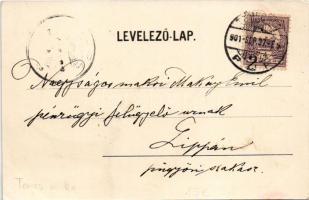 LEVELEZŐ-LAP.
Nagyságos makói Makay Emil
pénzügyi felügyelő urnak
Lippán
pügyőri szakasz.